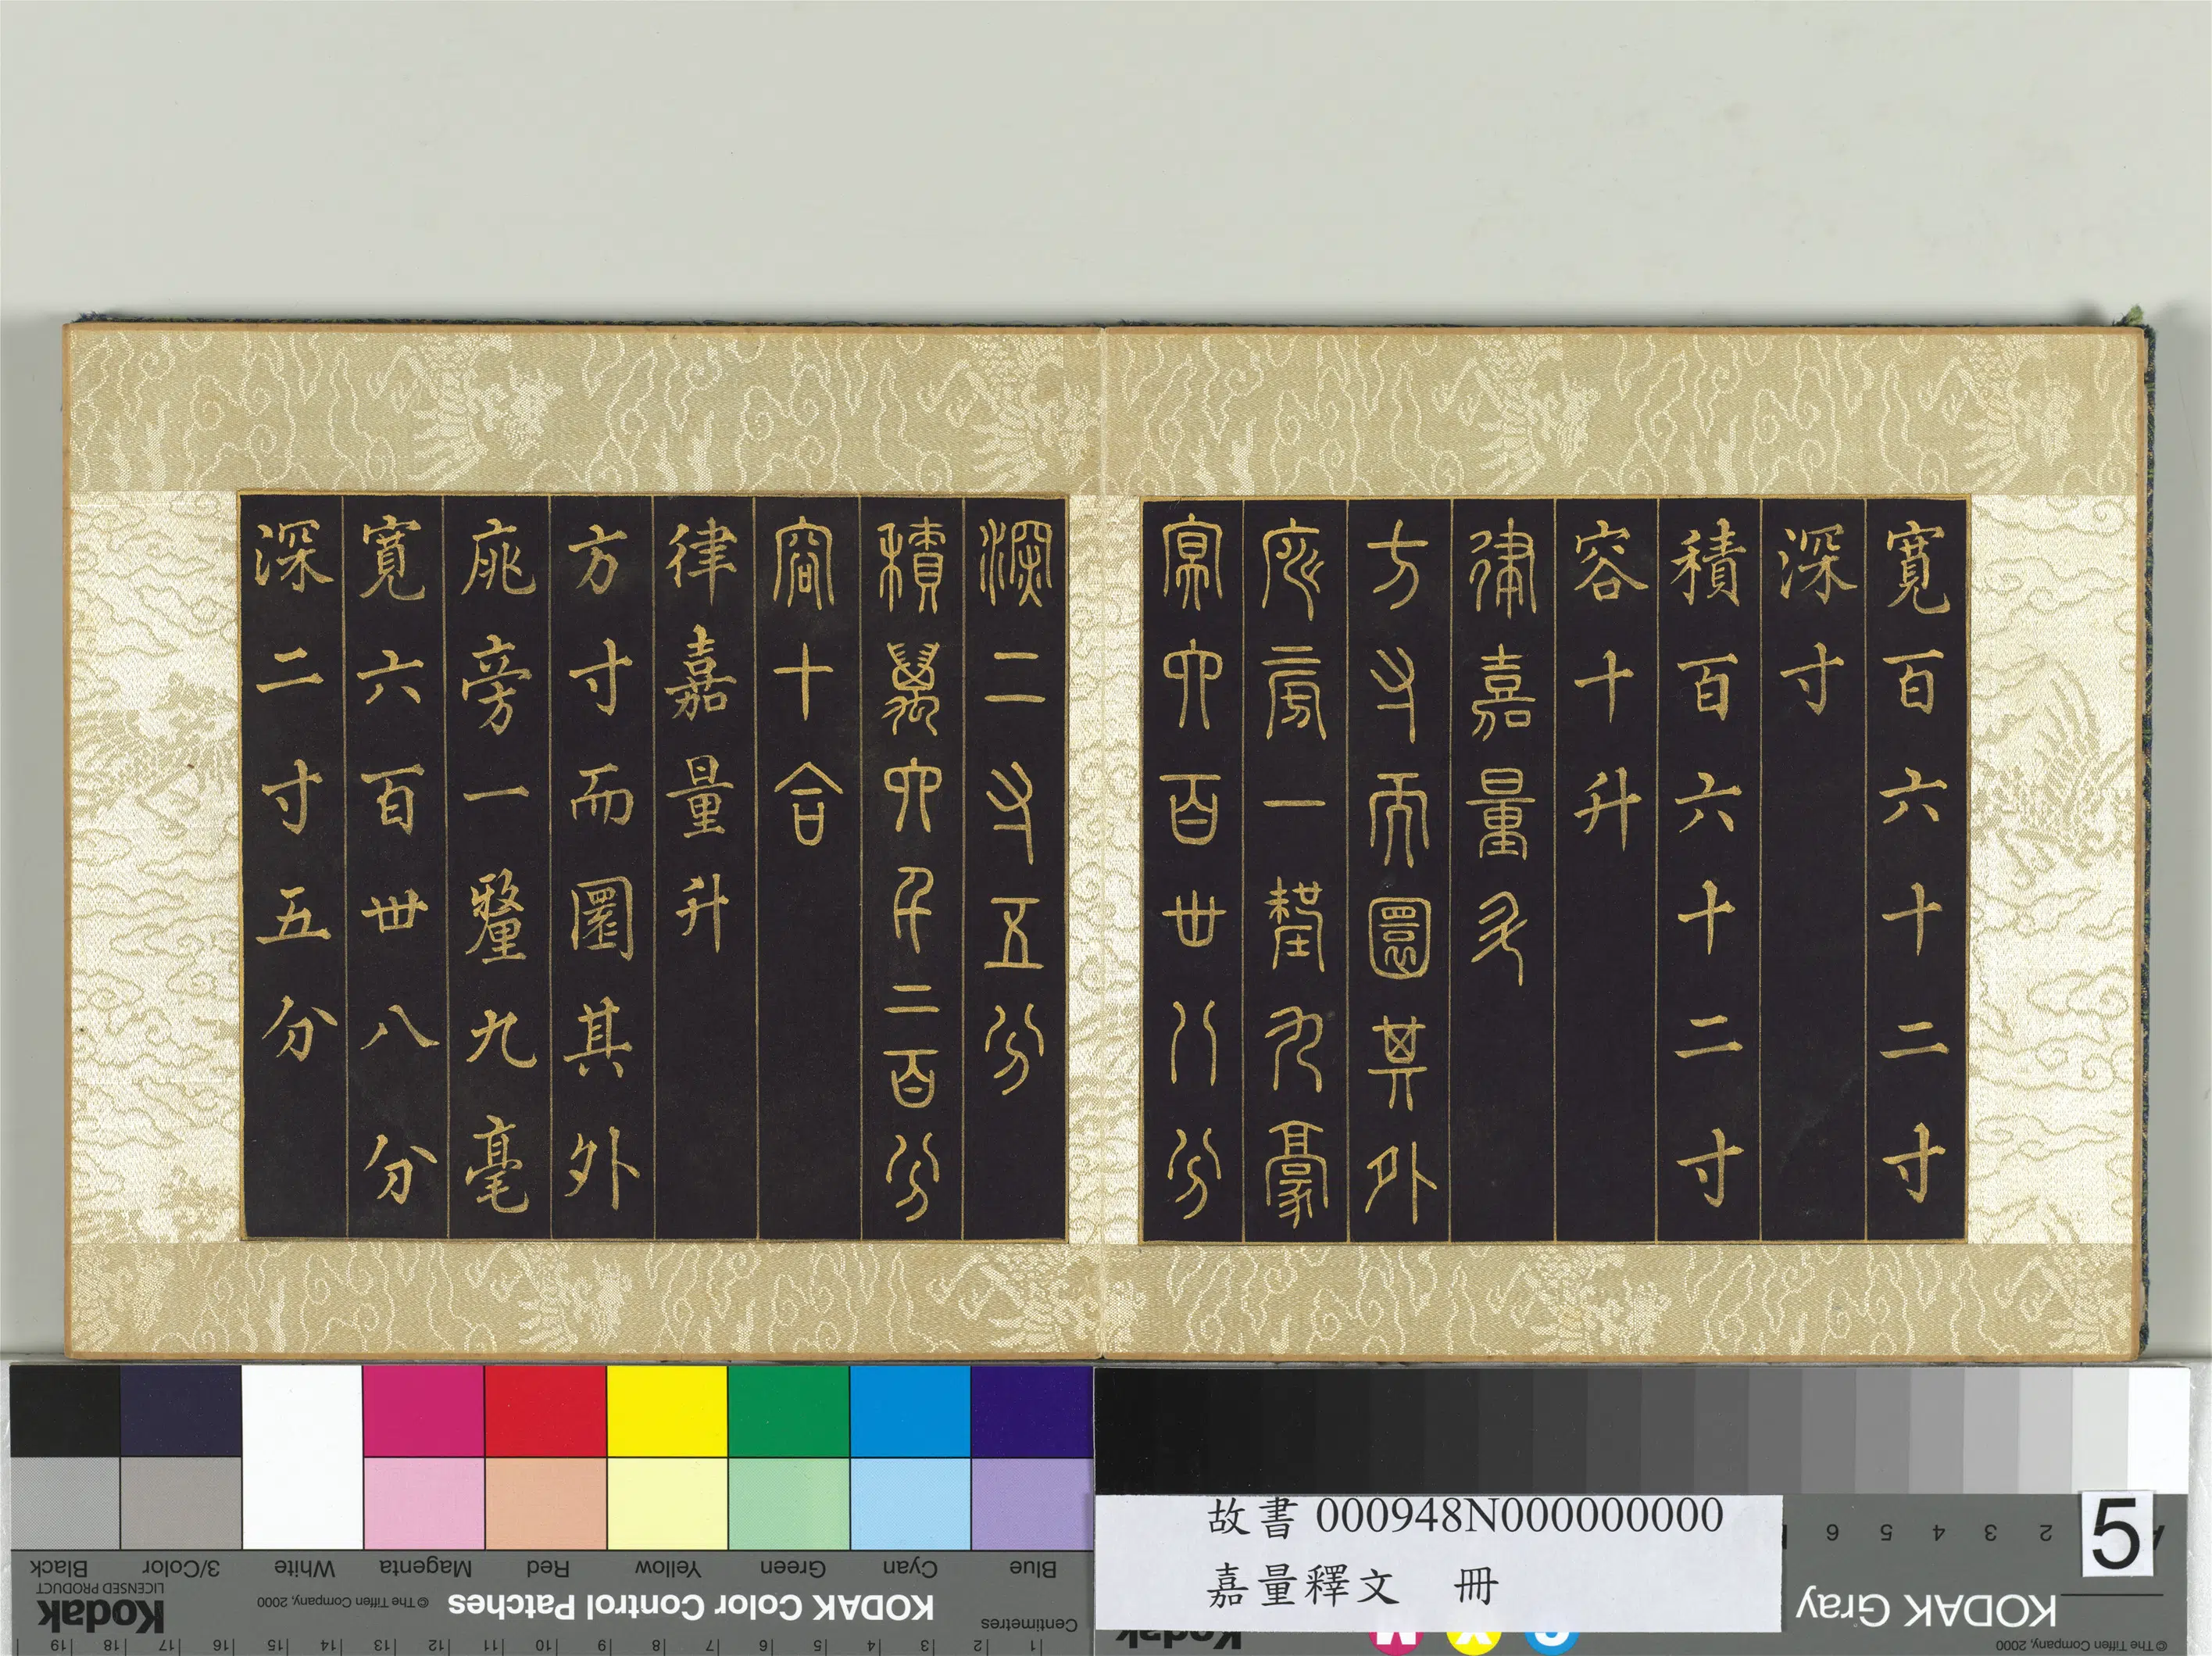 寬百六十二寸
深寸
積百六十二寸
容十升
律嘉量升
方寸而圜其外
庣旁一氂九豪
冥六百卌八分
深二寸五分
積萬六千二百分
容十合
律嘉量升
方寸而圜其外
庣旁一釐九毫
寬六百卌八分
深二寸五分
故書 000948N000000000
嘉量釋文 冊
5
KODAK Gray
2 3 4 5 6
© The Tiffen Company, 2000
Kodak
KODAK Color Control Patches
© The Tiffen Company, 2000
Kodak
LICENSED PRODUCT
Blue Cyan Green Yellow Red Magenta White 3/Color Black
Centimetres
1 2 3 4 5 6 7 8 9 10 11 12 13 14 15 16 17 18 19